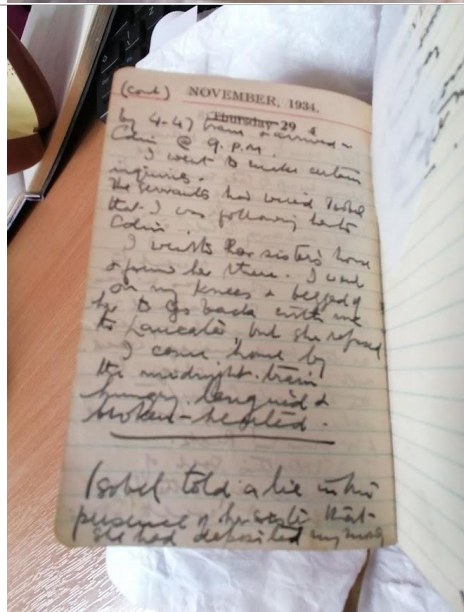 (cont) NOVEMBER, 1934.
Thursday 29
by 4-47 train & arrived
Edin @ 9. p.m.
I went to make certain
inquiries.
The servants had wired Isobel
that I was following her to
Edin.
I went to her sister's house
& found her there. I went
on my knees & begged of
her to go back with me
to Lancaster, but she refused
I came home by
the midnight train
hungry, languid &
broken-hearted.
Isobel told a lie in the
presence of her sister that
she had deposited my money